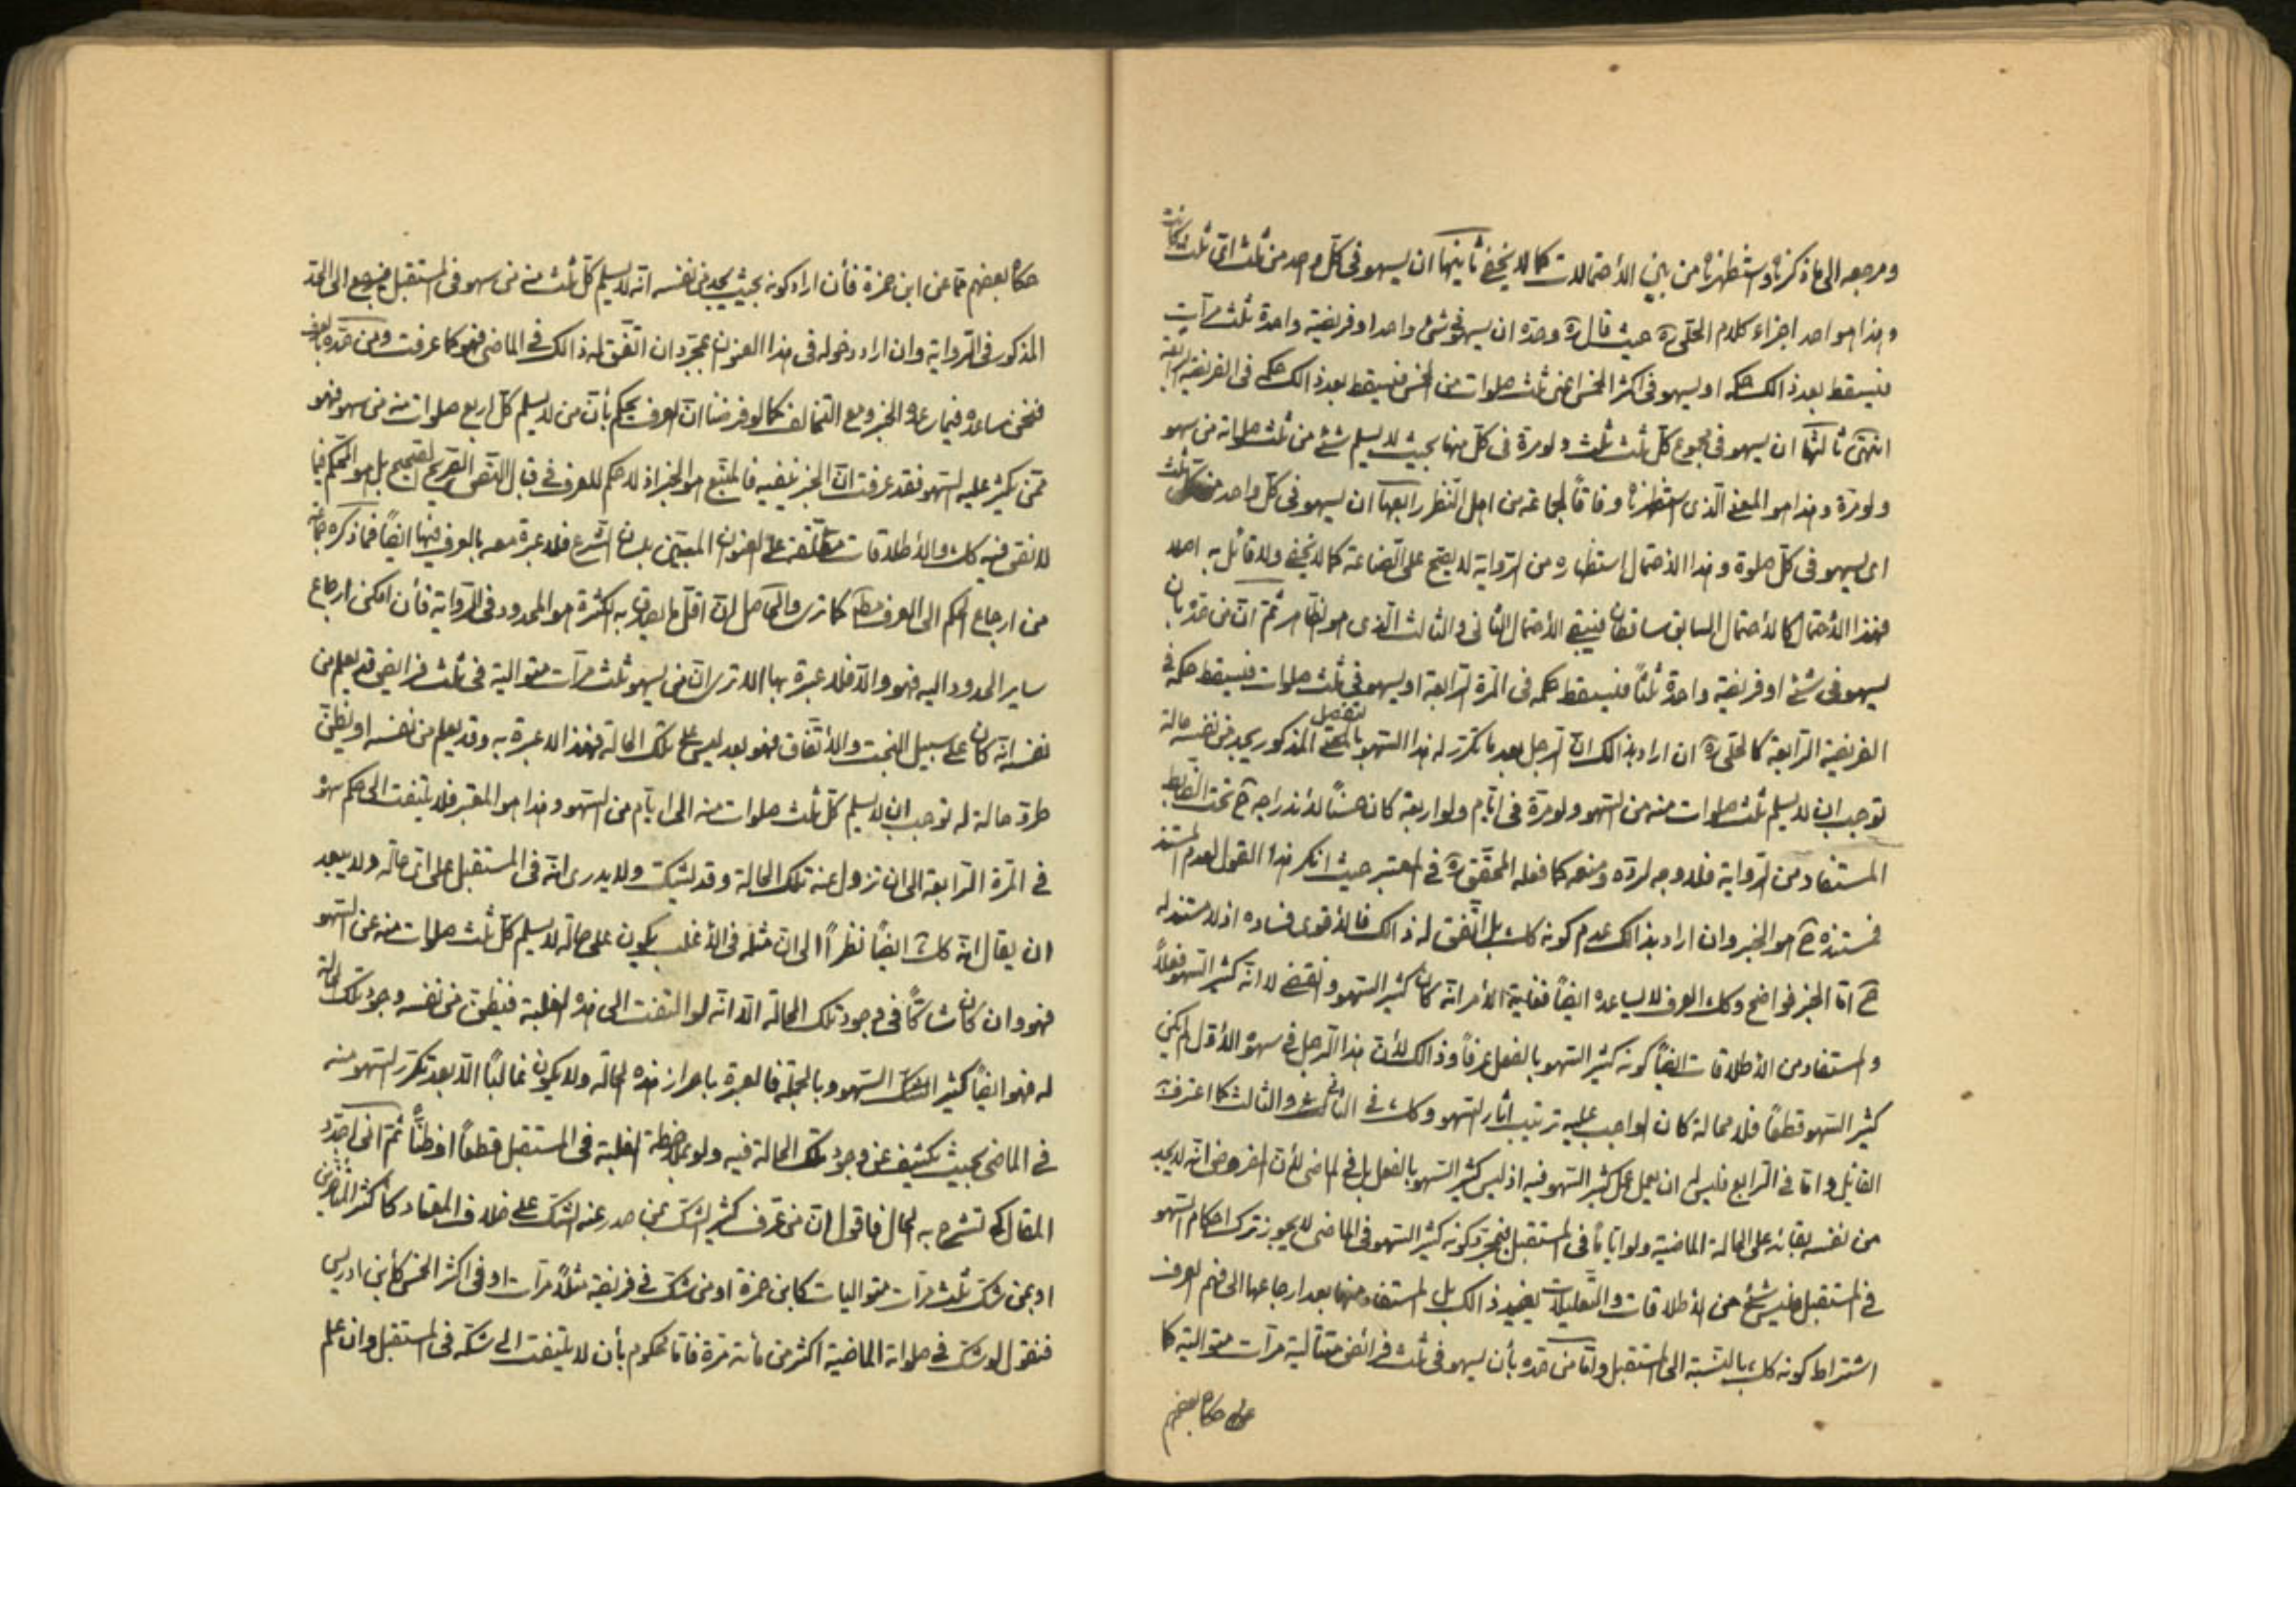 ومرجعه الى ما ذكرناه واستظهرناه من بين الأحتمالات كما لا يخفى ثانيها ان يسهو فى كلّ واحد من ثلث اىّ ثلث كانت
وهذا هو احد اجزاء كلام الحلّى ره حيث قال ره وحدّه ان يسهو فى شئ واحد او فريضة واحدة ثلث مرآت
فيسقط بعد ذالك حكمه او يسهو فى اكثر الخمس اعنى ثلث صلوات من الخمس فيسقط بعد ذالك حكمه فى الفريضة الرابعة
انتهى ثالثها ان يسهو فى مجموع كلّ ثلث ثلث ولو مرة فى كلّ منها بحيث لا يسلم شئ من ثلث صلواته من سهو
ولو مرّة وهذا هو المعنى الّذى استظهرناه وفاقاً لجماعة من اهل النّظر رابعها ان يسهو فى كلّ واحد من كلّ ثلث
اى يسهو فى كلّ صلوة وهذا الاحتمال استظهاره من الرّواية لا يصحّ على الصّناعة كما لا يخفى ولا قائل به اصلا
فهذا الأحتمال كالأحتمال السابق ساقطان فيبقى الأحتمال الثّانى والثالث الّذى هو الظاهر ثمّ انّ من حدّه بان
يسهو فى شئ او فريضة واحدة ثلثاً فيسقط حكمه فى المرّة الرابعة او يسهو فى ثلث صلوات فيسقط حكمه فى
الفريضة الرّابعة كالحلّى ره ان اراد بذالك انّ الرّجل بعد ما تكرّر له هذا السّهو بالمعنى المذكور يجد من نفسه حالة
توجب ان لا يسلم ثلث صلوات منه من السّهو ولو مرّة فى ايّام ولو اربعة كان حسناً لأندراجه ح تحت الضّابط
المستفاد من الرّواية فلا وجه لردّه ومنعه كما فعله المحقّق ره فى المعتبر حيث انكر هذا القول لعدم المستند
فمستنده ح هو الخبر وان اراد بذالك عدم كونه كك بل اتّفق له ذالك فالأقوى فساده اذ لا مستند له
ح امّا الخبر فواضح وكك العرف لا يساعده ايضاً فغاية الأمر انّه كان كثير السّهو وانقضى لا انّه كثير السّهو فعلاً
والمستفاد من الأطلاقات ايضاً كونه كثير السّهو بالفعل عرفاً وذالك لأنّ هذا الرّجل فى سهوه الأوّل لم يكن
كثير السّهو قطعاً فلا محالة كان الواجب عليه ترتيب اثار السّهو وكك فى الثانى والثالث كما اعترف
القائل وامّا فى الرّابع فليس له ان يعمل عمل كثير السّهو فيه اذ ليس كثير السّهو بالفعل بل فى الماضى لأنّ المفروض انّه لا يجد
من نفسه بقائه على الحالة الماضية ولو ايّاماً فى المستقبل فبمجرّد كونه كثير السّهو فى الماضى لا يجوز ترك احكام السّهو
فى المستقبل فليس شئ من الأطلاقات والتّعليلات يفيد ذالك بل المستفاد منها بعد ارجاعها الى فهم العرف
اشتراط كونه كك بالنّسبة الى المستقبل وامّا من حدّه بأن يسهو فى ثلث فرائض متتالية مرآت متوالية كما
حكاه بعضهم
حكاه بعضهم عن ابن حمزة فأن اراد كونه بحيث يجد من نفسه انّه لا يسلم كلّ ثلث منه من سهو فى المستقبل فيرجع الى الحدّ
المذكور فى الرّواية وان اراد دخوله فى هذا العنوان بمجرّد ان اتّفق له ذالك فى الماضى فهو كما عرفت ومن حدّه بالعرف
فنحن نساعده فيما ساعده الخبر ومع التّخالف كما لو فرضنا انّ العرف يحكم بأنّ من لا يسلم كلّ اربع صلوات منه من سهو فهو
ممّن يكثر عليه السّهو فقد عرفت انّ الخبر ينفيه فالمتّبع هو الخبر اذ لا حكم للعرف فى قبال النّص الصّريح الصّحيح بل هو المحكم فيما
لا نصّ فيه كك والأطلاقات معلّقة على العنوان المبيّن بلسان الشّرع فلا عبرة معه بالعرف فيها ايضاً فما ذكره جماعة
من ارجاع الحكم الى العرف مطلقا كما ترى والحاصل انّ اقلّ ما يعتبر به الكثرة هو المحدود فى الرّواية فأن امكن ارجاع
ساير الحدود اليه فهو والاّ فلا عبرة بها الا ترى انّ من يسهو ثلث مرآت متوالية فى ثلث فرايض قد يعلم من
نفسه انّه كان على سبيل البخت والأتّفاق فهو بعد ليس على تلك الحالة فهذا لا عبرة به وقد يعلم من نفسه او يظنّ
طروّ حالة له توجب ان لا يسلم كلّ ثلث صلوات منه الى ايّام من السّهو وهذا هو المعتبر فلا يلتفت الى حكم سهوه
فى المرّة الرّابعة الى ان تزول عنه تلك الحالة وقد يشكّ ولا يدرى انّه فى المستقبل على اىّ حالة ولا يبعد
ان يقال انّه كك ايضاً نظراً الى انّ مثله فى الأغلب يكون على حالة لا يسلم كلّ ثلث صلوات منه عن السّهو
فهو وان كان شاكّاً فى وجود تلك الحالة الاّ انّه لو التفت الى هذه الغلبة فيظنّ من نفسه وجود تلك الحالة
له فهو ايضاً كثير السّهو وبالجملة فالعبرة باحراز هذه الحالة ولا يكون غالباً الاّ بعد تكرّر السّهو منه
فى الماضى بحيث يكشف عن وجود تلك الحالة فيه ولو بملاحظة الغلبة فى المستقبل قطعاً او ظنّاً ثمّ انّى اجدّد
المقال كى تشرح به الحال فاقول انّ من عرّف كثير الشّك بمن صدر عنه الشّك على خلاف المعتاد كأكثر المتأخّرين
او بمن شكّ ثلث مرآت متواليات كابن حمزة او من شكّ فى فريضة ثلث مرآت او فى اكثر الخمس كأبن ادريس
فنقول لو شكّ فى صلواته الماضية اكثر من مأته مرّة فامّا تحكوم بأن لا يلتفت الى شكّه فى المستقبل وان علم